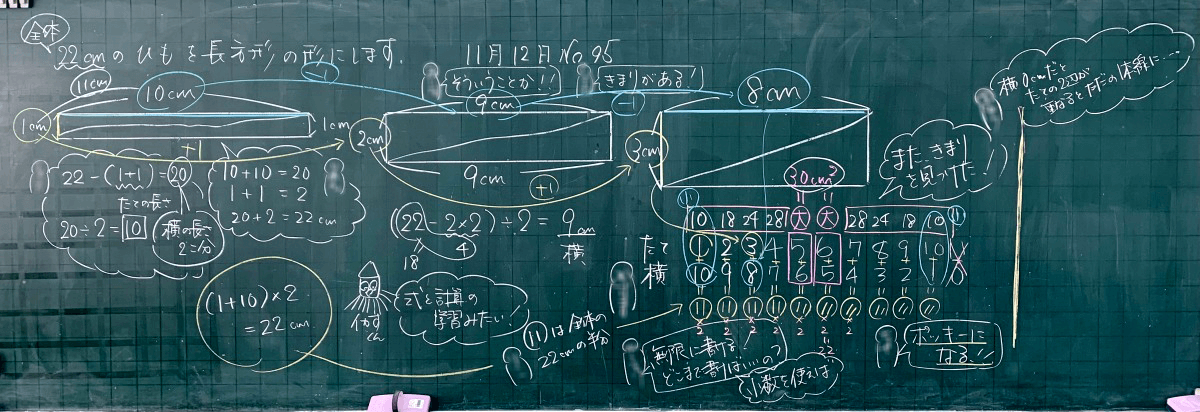 全体
22cmのひもを長方形の形にします。
11月12日 No.95
そういうことか!!
きまりがある!
11cm
10cm
-1
9cm
-1
8cm
1cm
1cm
+1
2cm
9cm
+1
3cm
30cm²
22-(1+1)=20
たての長さ
20÷2=10
横の長さ
2こ分
10+10=20
1+1=2
20+2=22cm
(22-2×2)÷2=9cm
4
18
横
(1+10)×2
=22cm
いかすくん
式と計算の
学習みたい!
11は全体の
22cmの半分
また、きまり
を見つけた!
11
10 18 24 28 大 大 28 24 18 10
11
たて 1 2 3 4 5 6 7 8 9 10
横 10 9 8 7 6 5 4 3 2 1 0
11 11 11 11 11 11 11 11 11 11
×2 ×2 ×2 ×2 ×2 ×2 ×2
22
無限に書ける!
どこまで書けば……の?
小数を使えば
ポッキーに
なる!!
横0cmだと
たての2辺が
重なるとただの体線に…